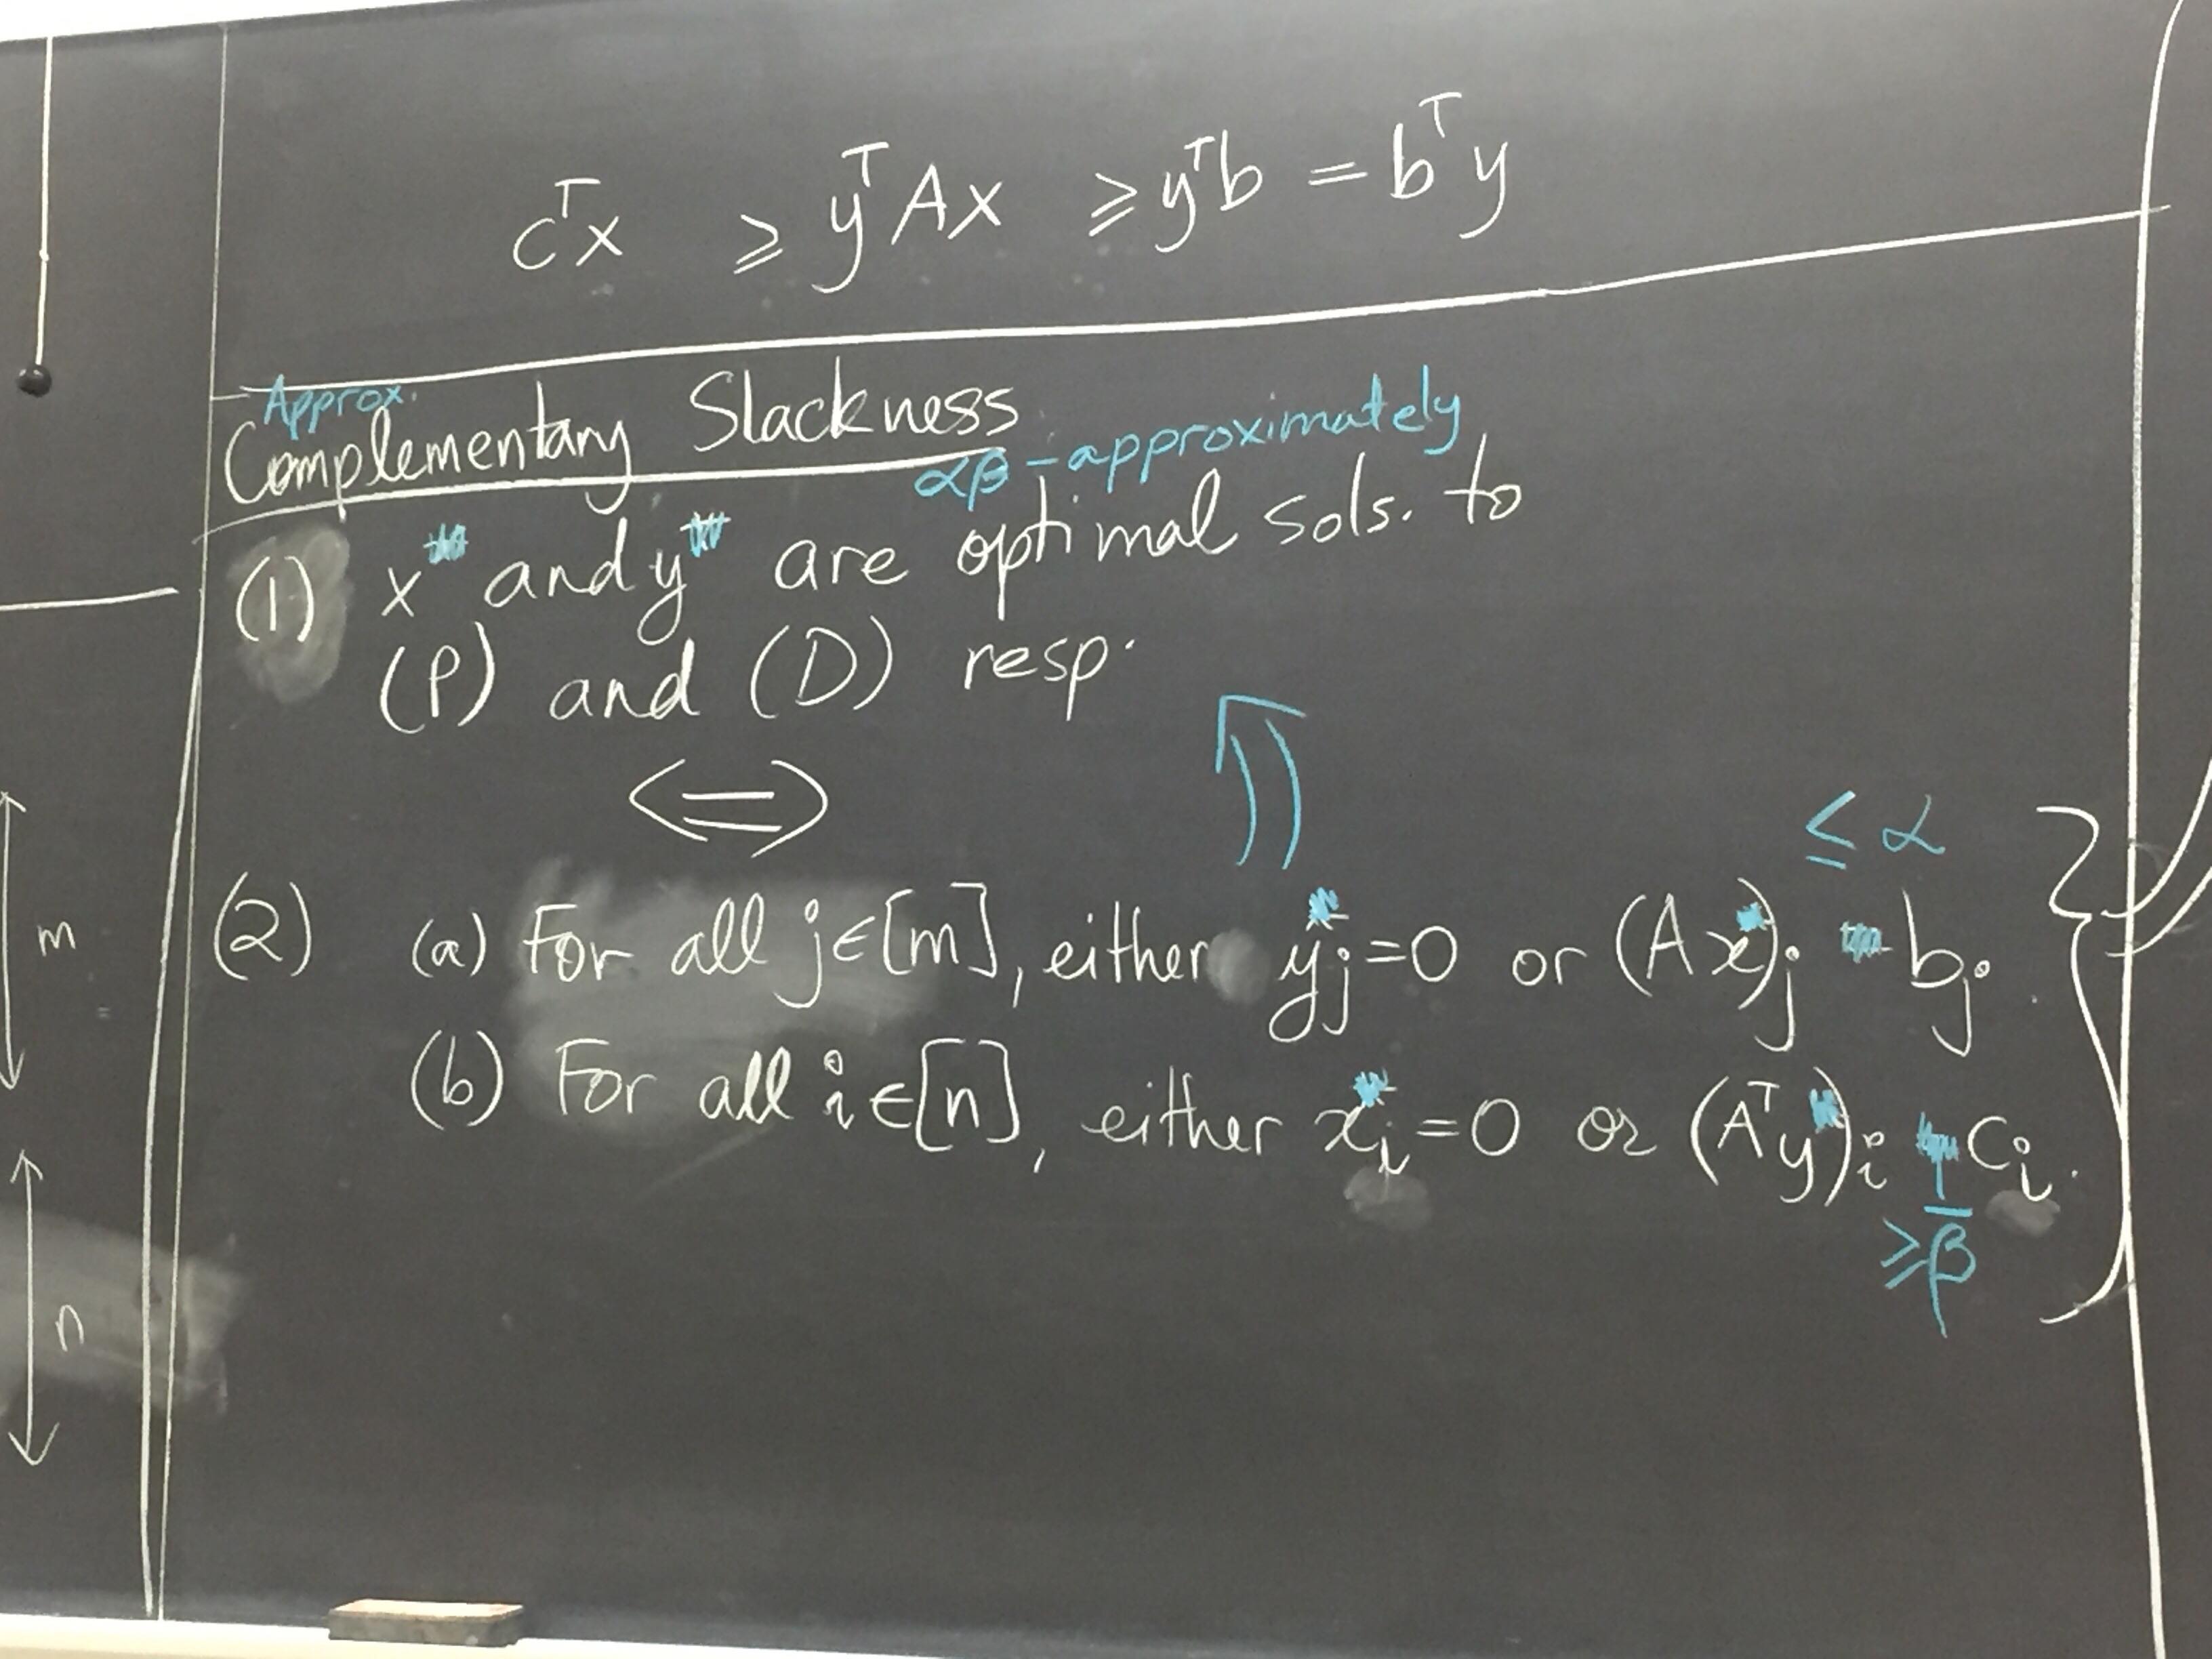 cᵀx ≥ yᵀAx ≥ yᵀb = bᵀy
Approx.
Complementary Slackness
αβ-approximately
(1) x and y are optimal sols. to
(P) and (D) resp.
<=>
≤ α
(2) (a) For all j∈[m], either yj=0 or (Ax)j bj.
m
(b) For all i∈[n], either xi=0 or (Aᵀy)i ci.
≥ 1/β
n